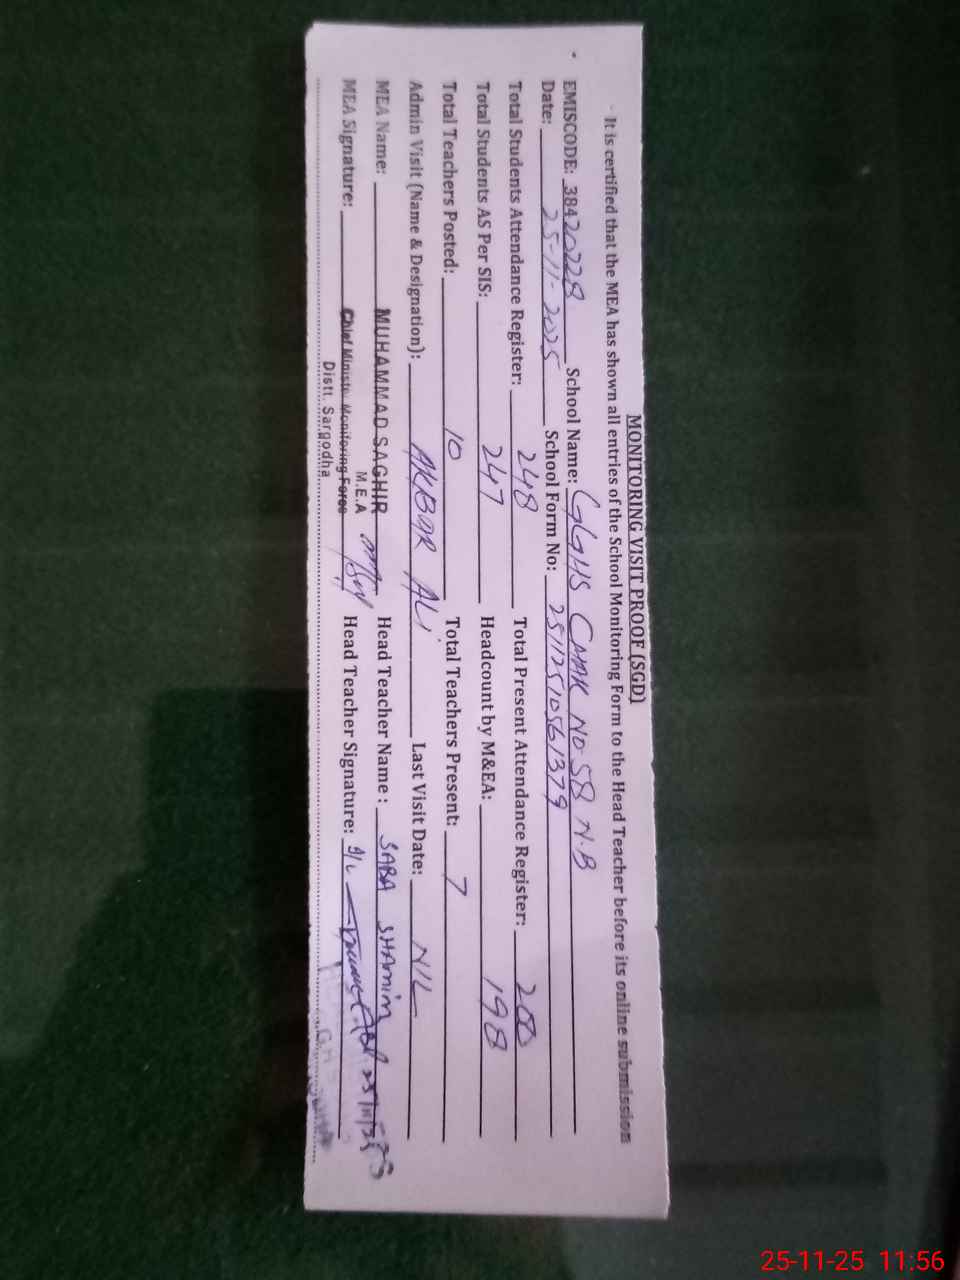 MONITORING VISIT PROOF (SGD)
It is certified that the MEA has shown all entries of the School Monitoring Form to the Head Teacher before its online submission
EMISCODE: 38420228 School Name: GGHS CHAK NO 58 N.B
Date: 25-11-2025 School Form No: 
Total Students Attendance Register: 248 Total Present Attendance Register: 200
Total Students AS Per SIS: 247 Headcount by M&EA: 198
Total Teachers Posted: 10 Total Teachers Present: 7
Admin Visit (Name & Designation): AKBAR ALI Last Visit Date: NIL
MEA Name: MUHAMMAD SAGHIR Head Teacher Name: SABA SHAMIM
M.E.A
MEA Signature: Chief Minister Monitoring Force Head Teacher Signature:
Distt. Sargodha
25-11-25 11:56